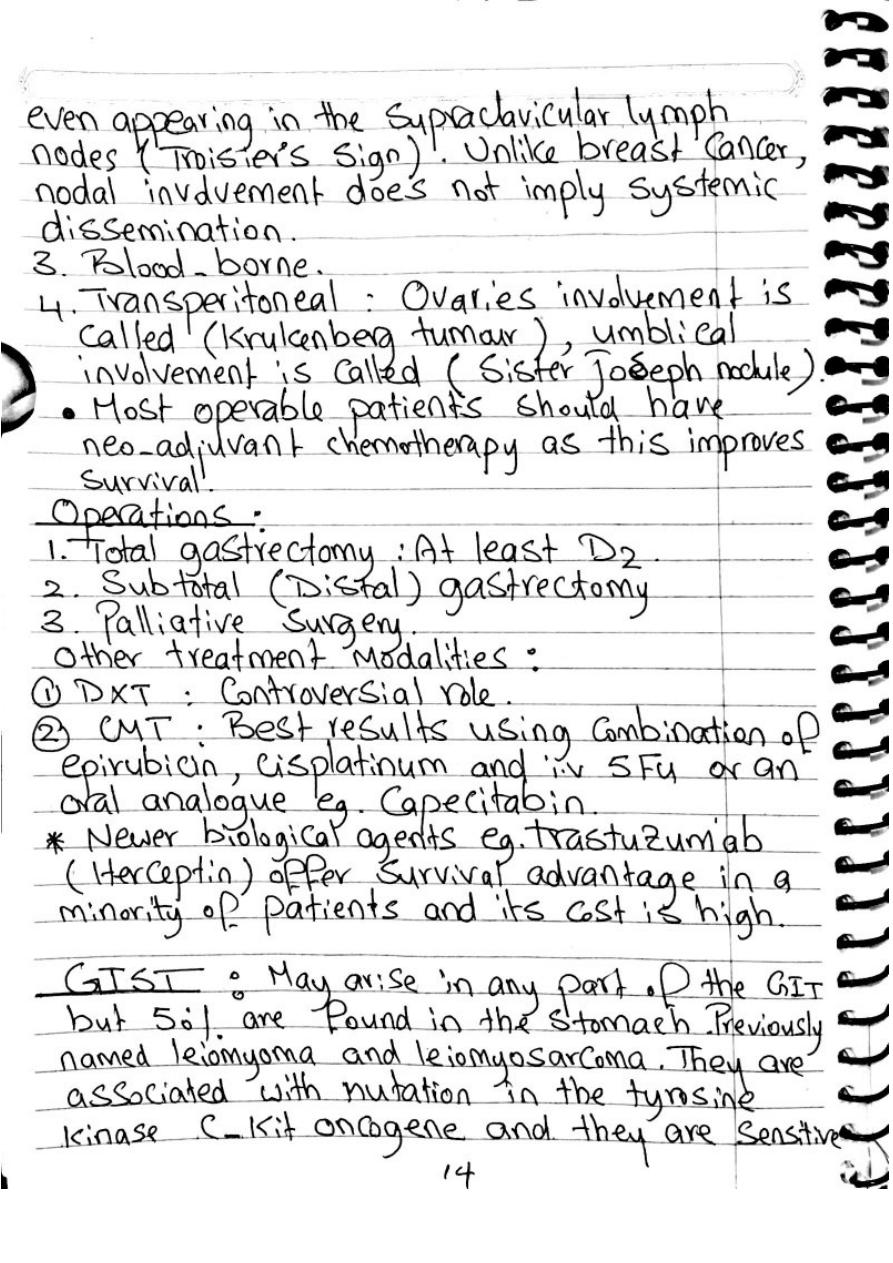 even appearing in the Supraclavicular lymph
nodes (Troisier's Sign). Unlike breast Cancer,
nodal involvement does not imply systemic
dissemination.
3. Blood-borne.
4. Transperitoneal : Ovaries involvement is
called (Krukenberg tumour), umblical
involvement is Called (Sister Joseph nodule).
• Most operable patients should have
neo-adjuvant chemotherapy as this improves
Survival.
Operations :
1. Total gastrectomy : At least D2.
2. Subtotal (Distal) gastrectomy
3. Palliative Surgery.
Other treatment Modalities :
① DXT : Controversial role.
② CMT : Best results using Combination of
epirubicin, cisplatinum and i.v 5Fu or an
oral analogue eg. Capecitabin.
* Newer biological agents eg. trastuzumab
(Herceptin) offer Survival advantage in a
minority of patients and its cost is high.
GIST : May arise in any part of the GIT
but 50% are Found in the Stomach. Previously
named leiomyoma and leiomyosarcoma. They are
associated with mutation in the tyrosine
kinase C-Kit oncogene and they are Sensitive
14